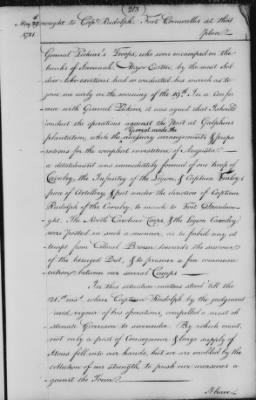 213
May 22
1781
brought to Capt Rudolph Fort Cornwallis at this
place
General Pickens's Troops, who were encamped on the
banks of Savannah. Major Eaton, by the most
laborious exertions had so conducted his march as to
join me early on the morning of the 19th. In a Confe-
rence with General Pickens, it was agreed that I should
conduct the operations against the Post at Galphin's
plantation, while the General made the necessary arrangements & prepa-
rations for the compleat investiture of Augusta -
a detachment was immediately formed of one troop of
Cavalry, the Infantry of the Legion, & Captain
of Artillery & put under the direction of Captain
Rudolph of the Cavalry, to march to Fort
The North Carolina Corps, & the Legion Cavalry
were posted in such a manner, as to forbid any at-
tempt from Colonel Brown towards the succour
of the besieged Post, & to preserve a free commun-
ication between our several Camps -
In this situation matters stood till the
21st inst. when Captain Rudolph by the judgement
and vigour of his operations, compelled a most ob-
stinate Garrison to surrender. By which event,
not only a post of Consequence & large supply of
Stores fell into our hands, but we are enabled by the
collection of our strength, to push our measures a-
gainst the Town
I have